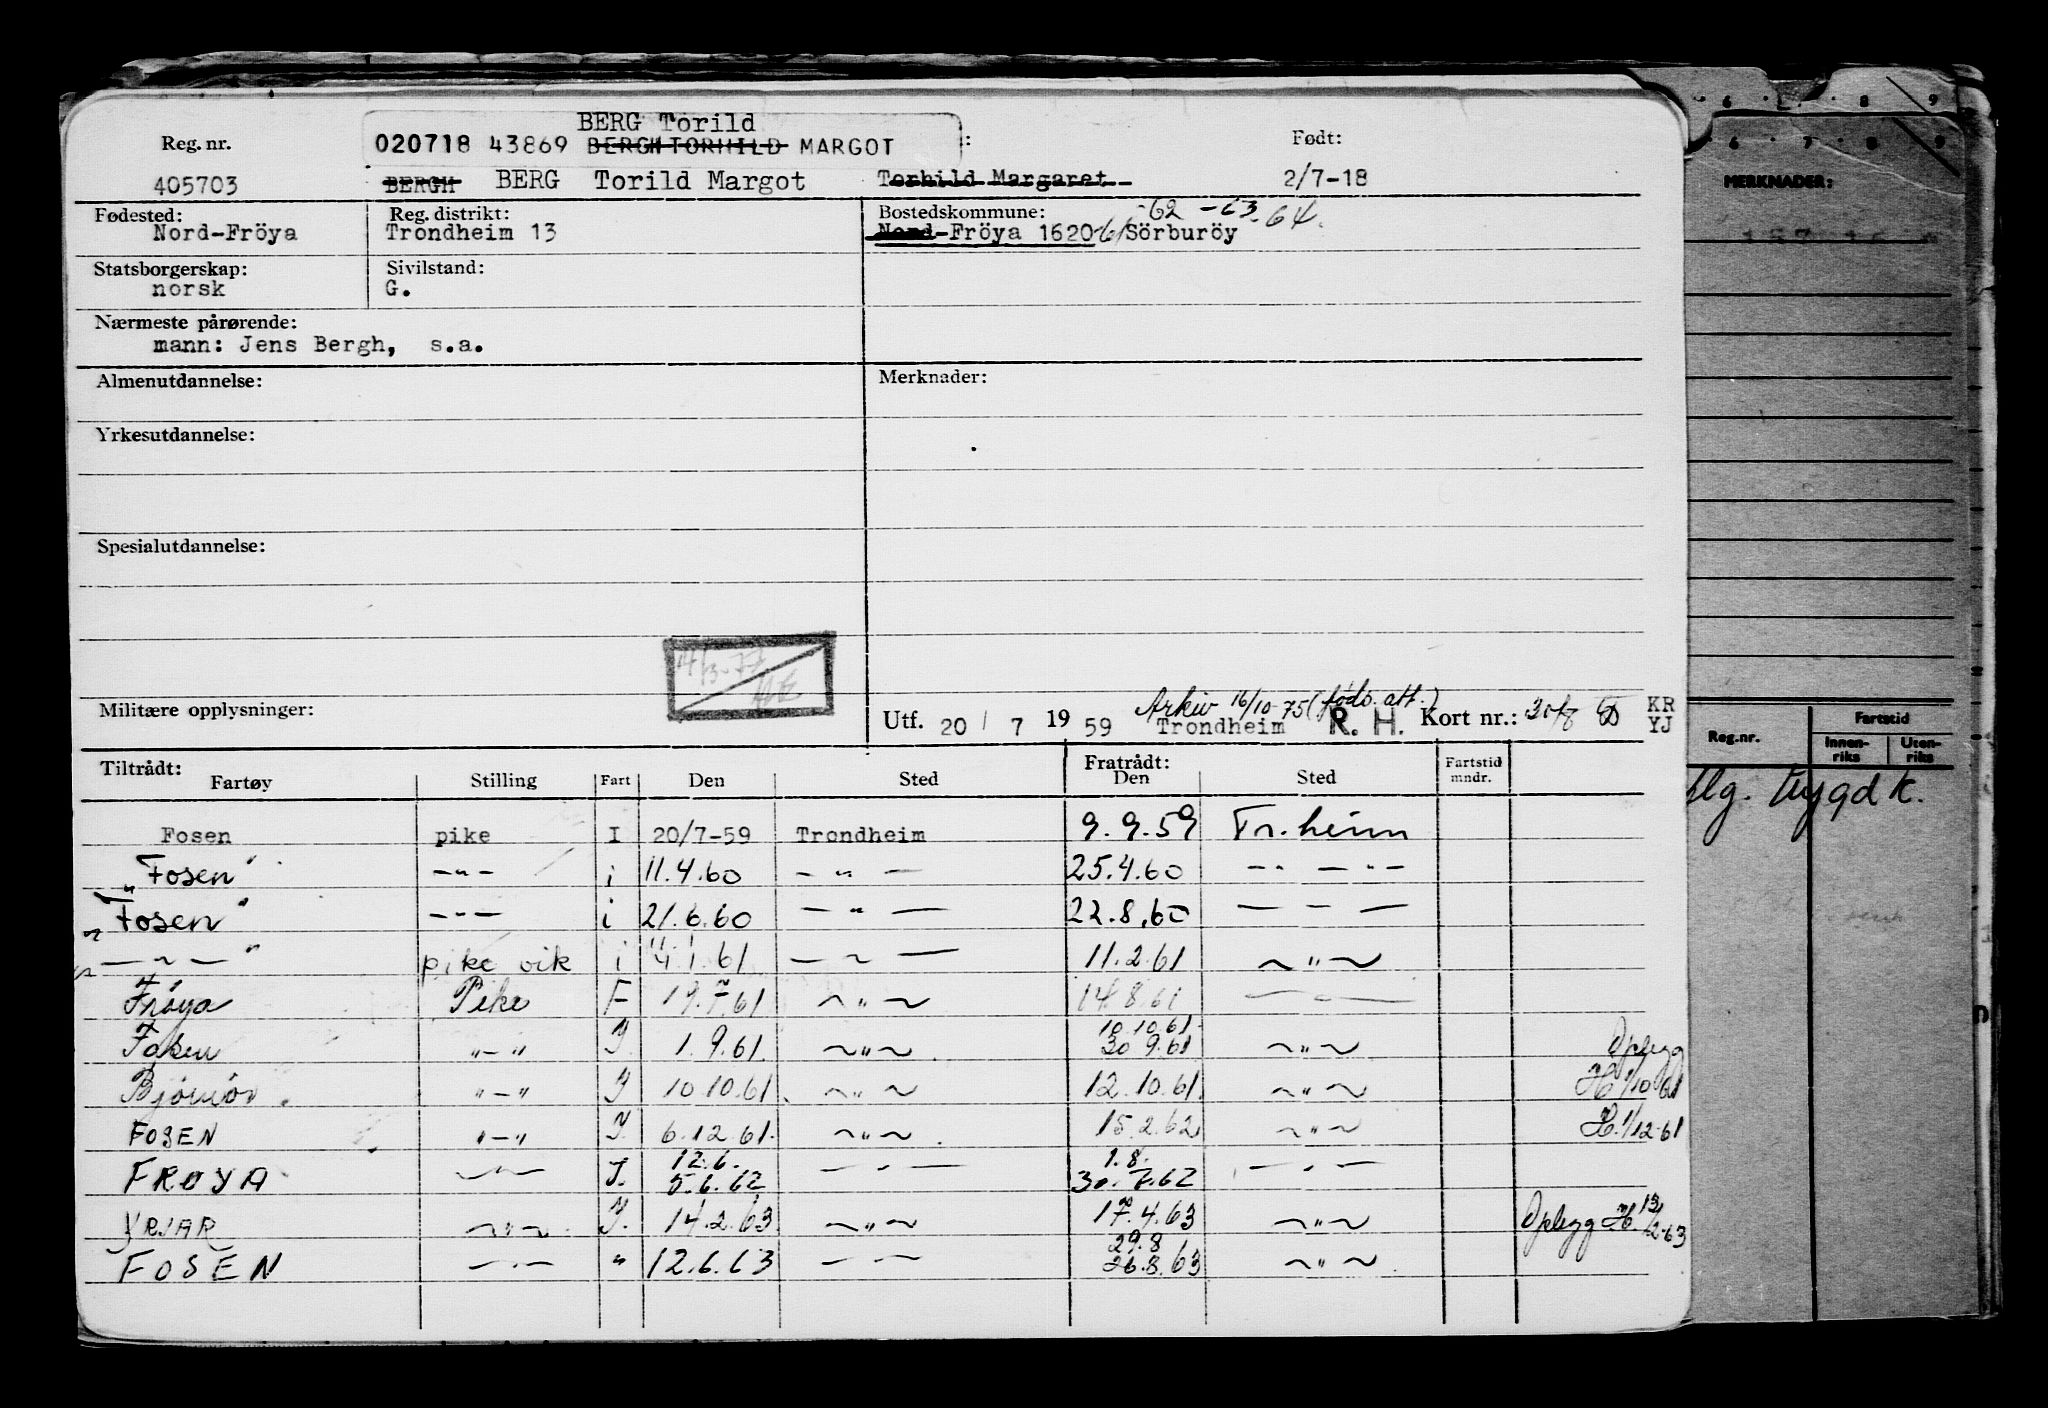 BERG Torild
Reg. nr. 020718 43869 BERGH TORHILD MARGOT : Født:
405703 BERGH BERG Torild Margot Torhild Margaret 2/7-18
Fødested: Reg. distrikt: Bostedskommune: -62 -63 -64.
Nord-Fröya Trondheim 13 Nord-Fröya 1620-61 Sörburöy
Statsborgerskap: Sivilstand:
norsk G.
Nærmeste pårørende:
mann: Jens Bergh, s.a.
Almenutdannelse: Merknader:
Yrkesutdannelse:
Spesialutdannelse:
Militære opplysninger:
Arkiv 16/10-75 (føds. att.)
Utf. 20 / 7 19 59 Trondheim R. H. Kort nr.: KR
YJ
Tiltrådt: Fratrådt: Fartstid
Fartøy Stilling Fart Den Sted Den Sted mndr.
Fosen pike I 20/7-59 Trondheim 9.9.59 Tr.heim
"Fosen" —"— i 11.4.60 — " — 25.4.60 —" — "—
"Fosen" —"— i 21.6.60 — " — 22.8.60 — — —
" — " — " pike vik i 4.1.61 — " — 11.2.61 — " —
Fröya Pike F 19.7.61 — " — 14.8.61 — " —
10.10.61
Fosen "—" I. 1.9.61. — " — 30 9.61 — " — Oplegg
Björnör "—" I 10.10.61. — " — 12.10.61. — " — H. 1/10-61
FOSEN "—" I. 6.12.61. — " — 15.2.62 — " — H. 1/12-61
12.6. 1.8.
FRØYA —"— I. 5.6.62 — " — 30.7.62 — " —
YRJAR — " — I. 14.2.63 — " — 17.4.63 — " — Oplegg H. 13/2-63
29.8
FOSEN — " — " 12.6.63 — " — 26.8.63 — " —
6 8 9
6 7 8 9
MERKNADER:
Fartstid
Reg.nr. Innen-riks Uten-riks
trygdk.